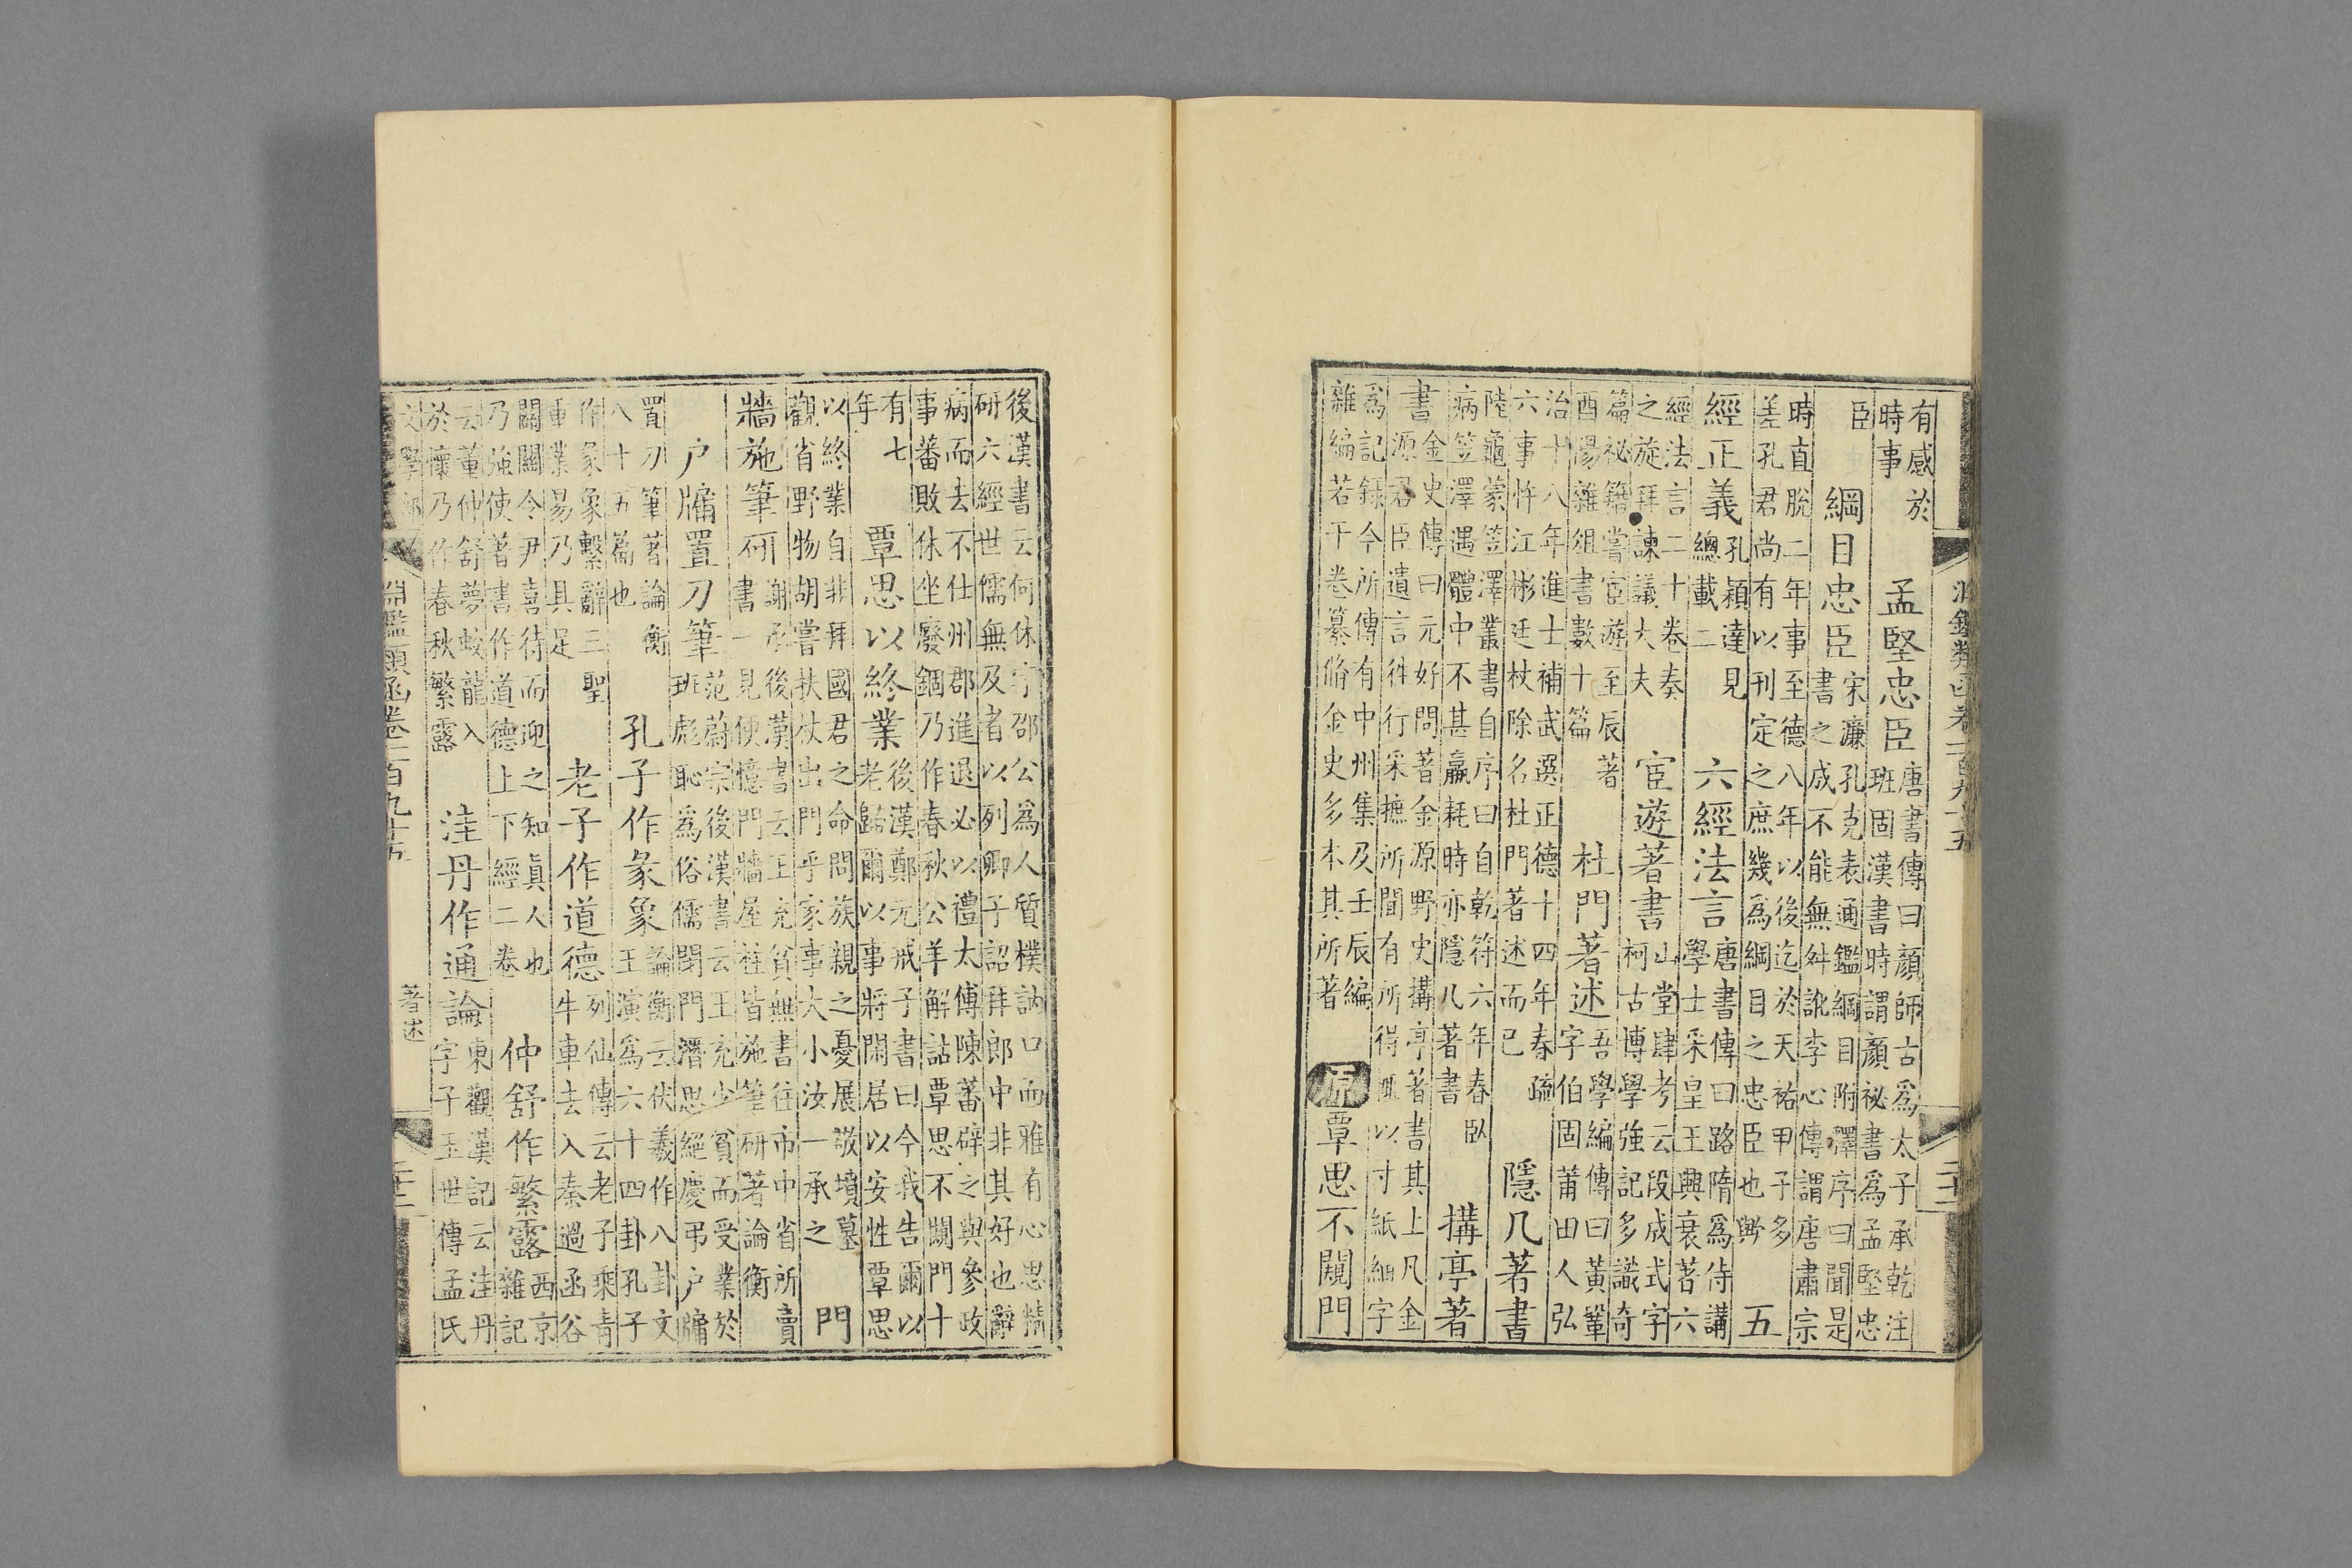 有感於
時事
孟堅忠臣
唐書傳曰顔師古爲太子承乾注
班固漢書時謂顔祕書爲孟堅忠
臣
綱目忠臣
宋濂孔克表通鑑綱目附釋序曰聞是
書之成不能無舛訛李心傳謂唐肅宗
時直脫二年事至德八年以後迄於天祐甲子多
差孔君尚有以刊定之庶幾爲綱目之忠臣也歟
五
經正義
孔穎達見
總載二
六經法言
唐書傳曰路隋爲侍講
學士采皇王興衰著六
經法言二十卷奏
之旋拜諫議大夫
宦遊著書
山堂肆考云段成式字
柯古博學強記多識奇
篇祕籍嘗宦遊至辰著
酉陽雜俎書數十篇
杜門著述
吾學編傳曰黃鞏
字伯固莆田人弘
治十八年進士補武選正德十四年春疏
六事忤江彬廷杖除名杜門著述而已
隱几著書
陸龜蒙笠澤叢書自序曰自乾符六年春臥
病笠澤遇體中不甚羸耗時亦隱几著書
搆亭著
書
金史傳曰元好問著金源野史搆亭著書其上凡金
源君臣遺言徃行采摭所聞有所得輒以寸紙細字
爲記録今所傳有中州集及壬辰編
雜編若干卷纂脩金史多本其所著
原
覃思不闚門
後漢書云何休字邵公爲人質樸訥口而雅有心思精
研六經世儒無及者以列卿子詔拜郎中非其好也辭
病而去不仕州郡進退必以禮太傅陳蕃辟之與參政
事蕃敗休坐廢錮乃作春秋公羊解詁覃思不闚門十
有七
年
覃思以終業
後漢鄭元戒子書曰今我告爾以
老歸爾以事將閑居以安性覃思
以終業自非拜國君之命問族親之憂展敬墳墓
觀省野物胡嘗扶杖出門乎家事大小汝一承之
門
牆施筆研
謝承後漢書云王充貧無書往市中省所賣
書一見便憶門牆屋柱皆施筆研著論衡
户牖置刀筆
范蔚宗後漢書云王充少貧而受業於
班彪恥爲俗儒閉門潛思絕慶弔户牖
置刀筆著論衡
八十五篇也
孔子作彖象
論衡云伏羲作八卦文
王演爲六十四卦孔子
作彖象繫辭三聖
重業易乃具足
老子作道德
列仙傳云老子乘青
牛車去入秦過函谷
關關令尹喜待而迎之知眞人也
乃強使著書作道德上下經二卷
仲舒作繁露
西京
雜記
云董仲舒夢蛟龍入
於懷乃作春秋繁露
洼丹作通論
東觀漢記云洼丹
字子玉世傳孟氏
淵鑑類函卷一百九十五
著述